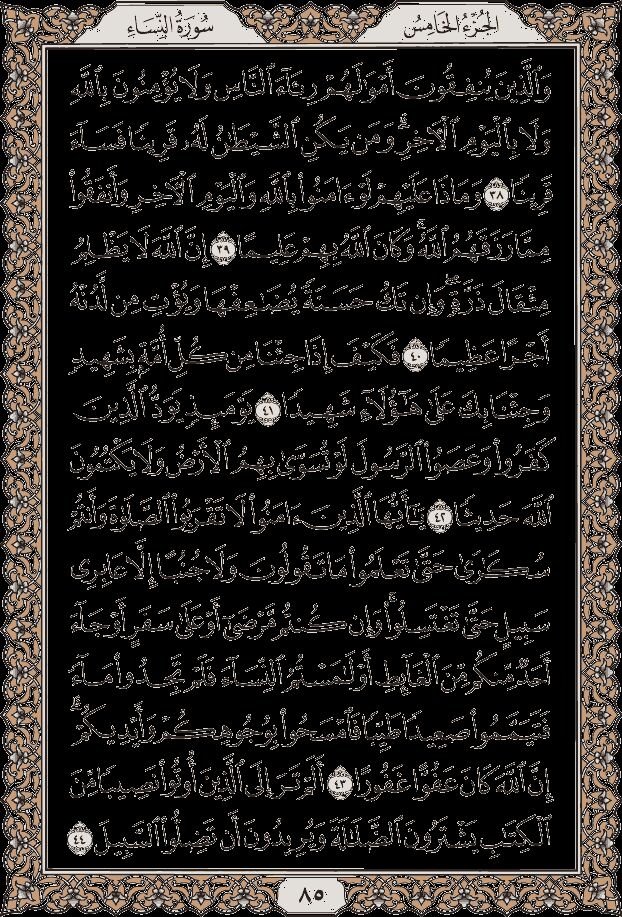 الجُزْءُ الخَامِسُ
سُورَةُ النِّسَاءِ
وَٱلَّذِينَ يُنفِقُونَ أَمْوَٰلَهُمْ رِئَآءَ ٱلنَّاسِ وَلَا يُؤْمِنُونَ بِٱللَّهِ
وَلَا بِٱلْيَوْمِ ٱلْـَٔاخِرِ ۗ وَمَن يَكُنِ ٱلشَّيْطَٰنُ لَهُۥ قَرِينًا فَسَآءَ
قَرِينًا ٣٨ وَمَاذَا عَلَيْهِمْ لَوْ ءَامَنُوا۟ بِٱللَّهِ وَٱلْيَوْمِ ٱلْـَٔاخِرِ وَأَنفَقُوا۟
مِمَّا رَزَقَهُمُ ٱللَّهُ ۚ وَكَانَ ٱللَّهُ بِهِمْ عَلِيمًا ٣٩ إِنَّ ٱللَّهَ لَا يَظْلِمُ
مِثْقَالَ ذَرَّةٍ ۖ وَإِن تَكُ حَسَنَةً يُضَٰعِفْهَا وَيُؤْتِ مِن لَّدُنْهُ
أَجْرًا عَظِيمًا ٤٠ فَكَيْفَ إِذَا جِئْنَا مِن كُلِّ أُمَّةٍۭ بِشَهِيدٍ
وَجِئْنَا بِكَ عَلَىٰ هَٰٓؤُلَآءِ شَهِيدًا ٤١ يَوْمَئِذٍ يَوَدُّ ٱلَّذِينَ
كَفَرُوا۟ وَعَصَوُا۟ ٱلرَّسُولَ لَوْ تُسَوَّىٰ بِهِمُ ٱلْأَرْضُ وَلَا يَكْتُمُونَ
ٱللَّهَ حَدِيثًا ٤٢ يَٰٓأَيُّهَا ٱلَّذِينَ ءَامَنُوا۟ لَا تَقْرَبُوا۟ ٱلصَّلَوٰةَ وَأَنتُمْ
سُكَٰرَىٰ حَتَّىٰ تَعْلَمُوا۟ مَا تَقُولُونَ وَلَا جُنُبًا إِلَّا عَابِرِى
سَبِيلٍ حَتَّىٰ تَغْتَسِلُوا۟ ۚ وَإِن كُنتُم مَّرْضَىٰٓ أَوْ عَلَىٰ سَفَرٍ أَوْ جَآءَ
أَحَدٌ مِّنكُم مِّنَ ٱلْغَآئِطِ أَوْ لَٰمَسْتُمُ ٱلنِّسَآءَ فَلَمْ تَجِدُوا۟ مَآءً
فَتَيَمَّمُوا۟ صَعِيدًا طَيِّبًا فَٱمْسَحُوا۟ بِوُجُوهِكُمْ وَأَيْدِيكُمْ ۗ
إِنَّ ٱللَّهَ كَانَ عَفُوًّا غَفُورًا ٤٣ أَلَمْ تَرَ إِلَى ٱلَّذِينَ أُوتُوا۟ نَصِيبًا مِّنَ
ٱلْكِتَٰبِ يَشْتَرُونَ ٱلضَّلَٰلَةَ وَيُرِيدُونَ أَن تَضِلُّوا۟ ٱلسَّبِيلَ ٤٤
٨٥